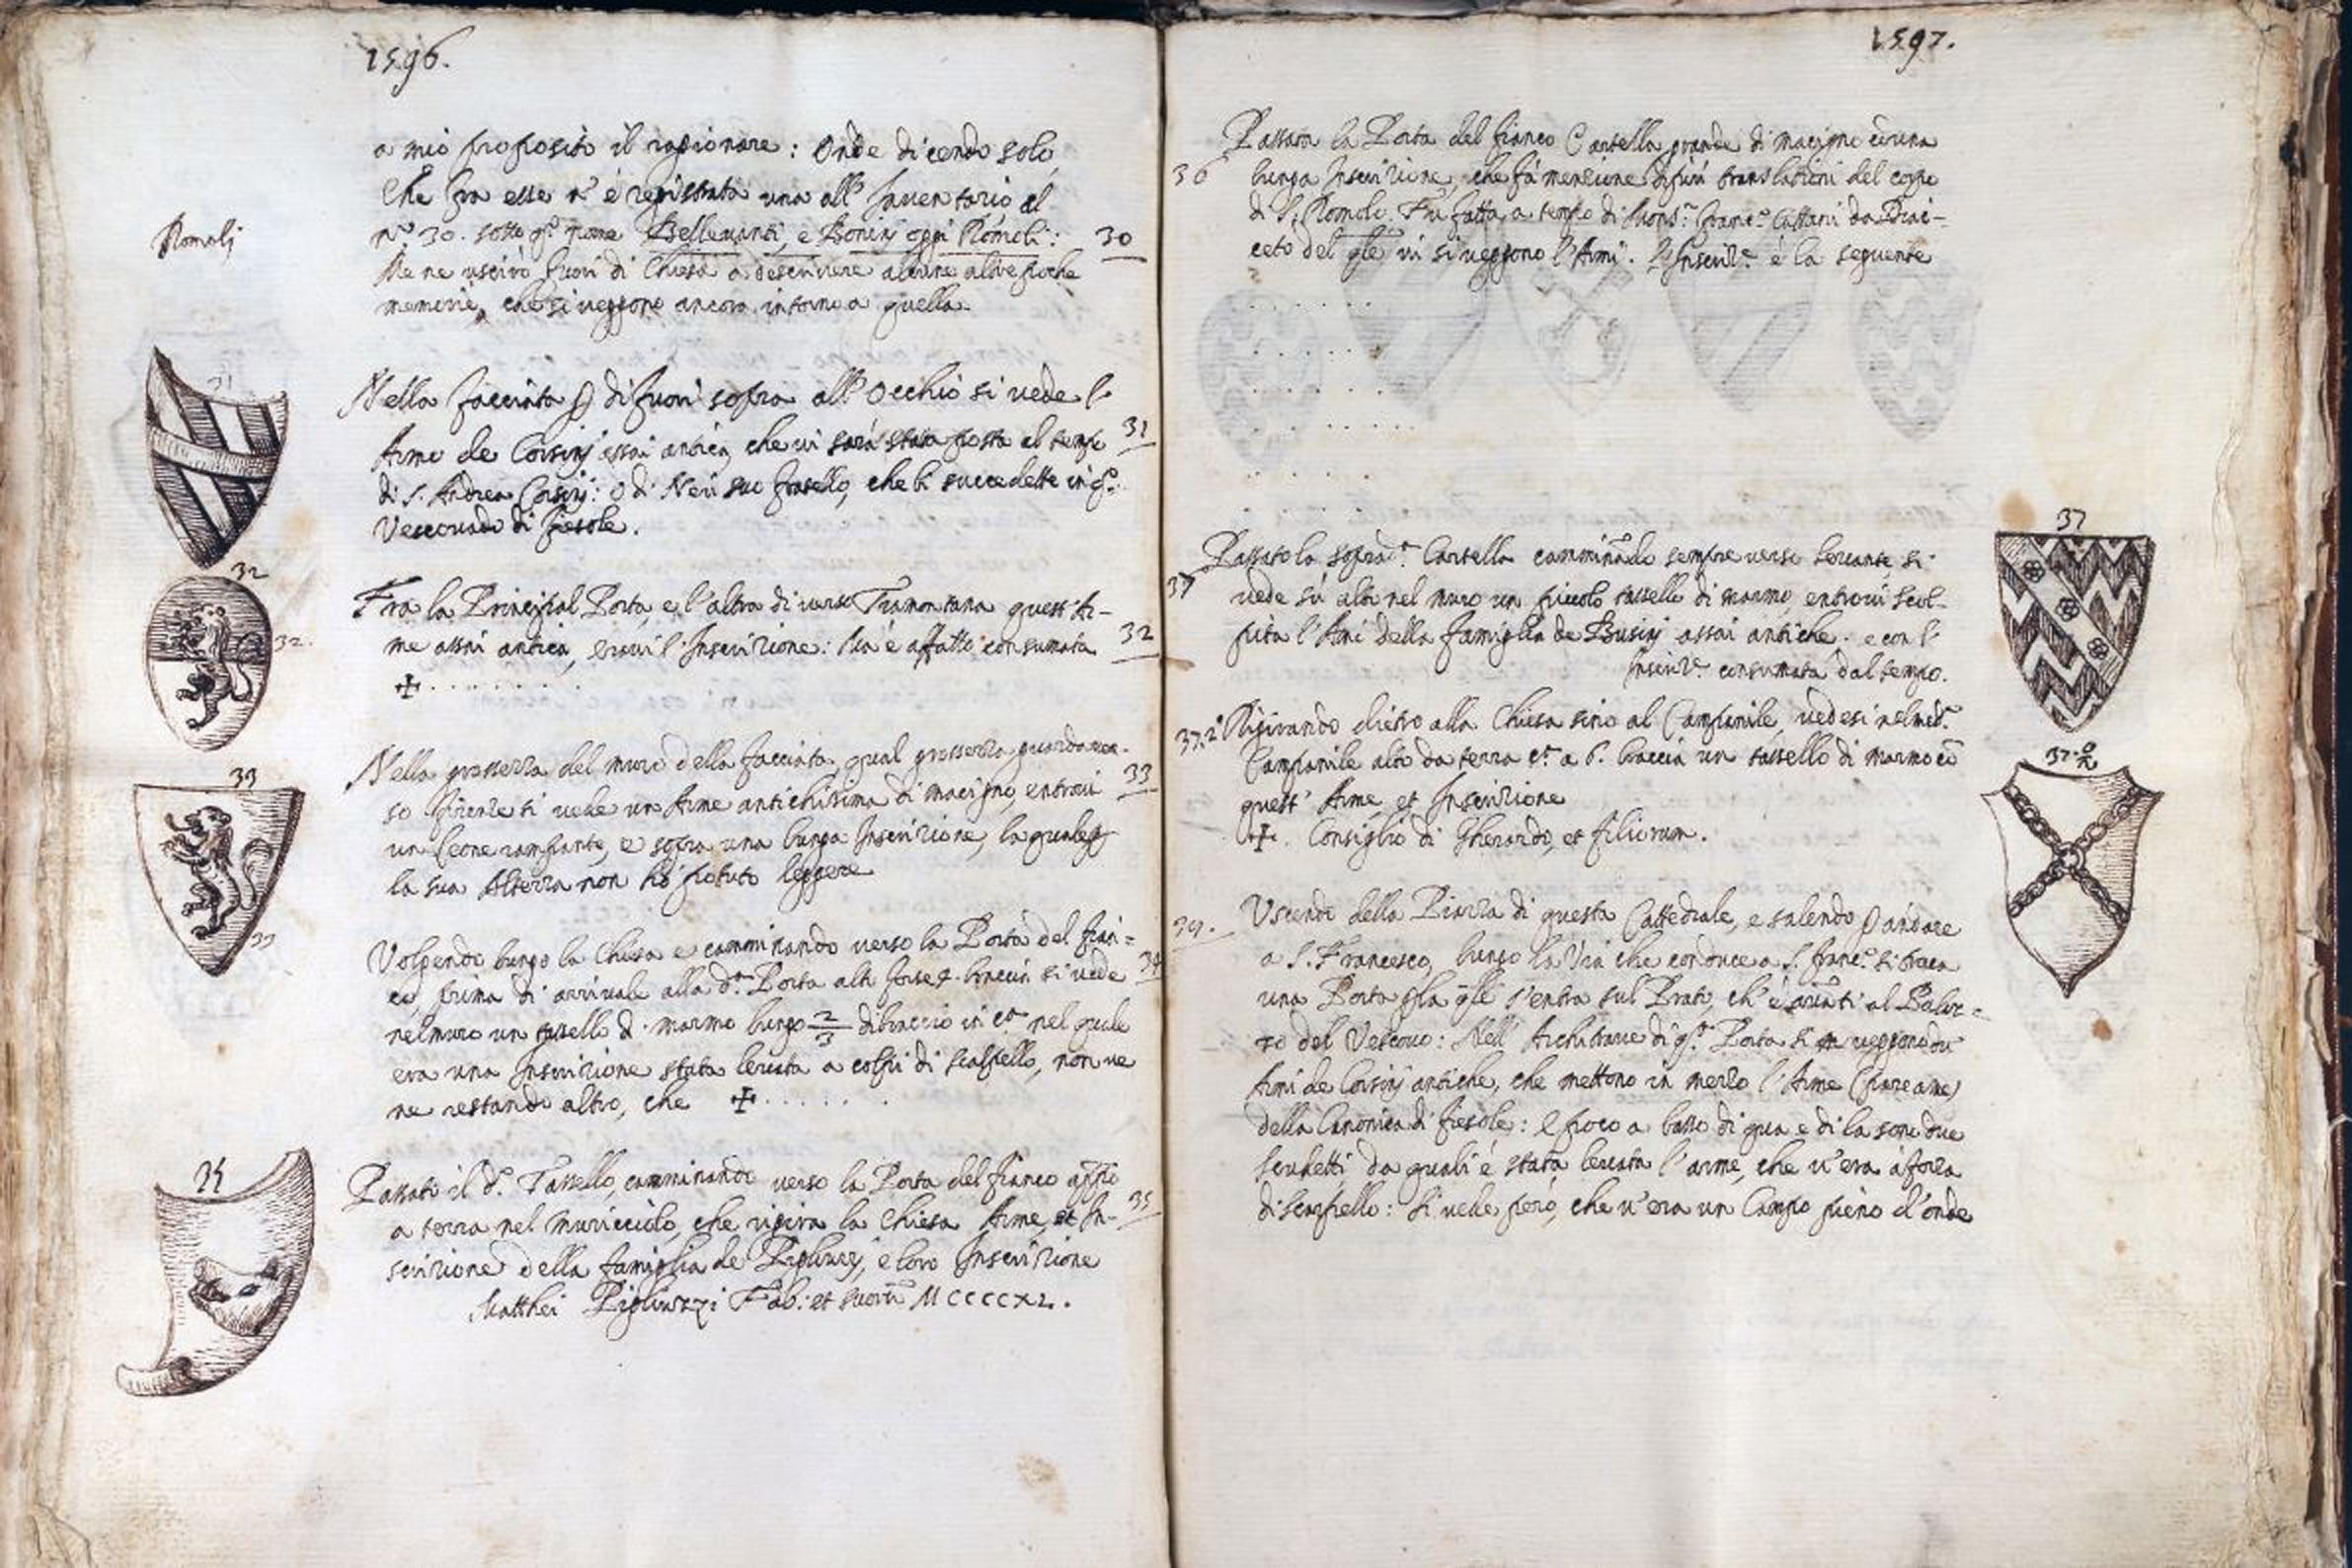 1596.
a mio proposito il ragionare: Onde dicendo solo,
Che fra esse n' è registrata una all' Inventario al
Romolj
n.º 30. sotto q.º nome Bellevanti, e Bonini oggi Romoli: 30
Me ne uscirò fuori di Chiesa a descrivere alcune altre poche
memorie, che si veggono ancora intorno a quella.
Nella facciata di fuori sopra all' Occhio si vede l'
Arme de Corsinj assai antica, che vi sarà stata posta al tempo 31
di S. Andrea Corsinj: O di Neri suo fratello, che li succedette in q.º
Vescovado di Fiesole.
32
Fra la Principal Porta, e l'altra di verso Tramontana quest' Ar-
me assai antica, eravi l'Inscrizione: Ma è affatto consumata 32
32.
✠ . . . . . . . .
Nella grossezza del muro della facciata, qual grossezza guarda ver-
33
so Firenze si vede un Arme antichissima di macigno, entrovi 33
un Leone rampante, e sopra una lunga Inscrizione, la quale p
la sua Altezza non hò potuto leggere
33
Volgendo lungo la Chiesa e camminando verso la Porta del fian=
co, prima di arrivare alla d.ª Porta alto forse 7. braccia si vede 34
nel muro un tassello di marmo lungo 2/3 di braccio in c.ª nel quale
era una Inscrizione stata levata a colpi di scalpello, non ve
ne restando altro, che ✠ . . . . . .
35
Passato il d.º Tassello, camminando verso la Porta del fianco appiè
a terra nel muricciolo, che rigira la Chiesa Arme, et In- 35
scrizione della famiglia de Pigliuzzj, e loro Inscrizione
Matthei Pigliuzzi Fab: et suorũ MCCCCXL.
1597.
Passata la Porta del fianco Cartella grande di macigno cõ una
36 lunga Inscrizione, che fà menzione di più translationi del corpo
di S. Romolo. Fu fatta a tempo di Mons.r Franc.º Cattani da Diac-
ceto del qle vi si veggono l'Armi. L'Inscriz.e è la seguente
. . . . . .
. . . . . .
. . . . . .
. . . . . . .
. . . . . .
. . . . .
37
Passato la sopradª. Cartella camminãdo sempre verso Levante, si
37 vede sù alto nel muro un piccolo tassello di marmo, entrovi scol-
pita l'Armi della famiglia de Businj assai antiche. e con l'
Inscriz.e consumata dal tempo.
37.2º Rigirando dietro alla Chiesa sino al Campanile, vedesi nel med.º
37.2º
Campanile alto da terra c.ª a 6. braccia un tassello di marmo cõ
quest' Arme, et Inscrizione
✠. Consiglio di Gherardo, et filiorum.
39. Uscendo della Piazza di questa Cattedrale, e salendo p andare
a S. Francesco, lungo la Via che conduce a S. Franc.º si trova
una Porta p la qle s'entra sul Prato, ch' è avãti al Palaz=
zo del Vescovo: Nell' Architrave di qª. Porta si veggono du
Armi de Corsinj antiche, che mettono in mezzo l'Arme (pare a me)
della Canonica di Fiesole: e poco a basso di qua e di la sono due
scudetti, da quali è stata levata l'arme, che v'era à forza
di scarpello: Si vede però, che v'era un Campo pieno d'onde